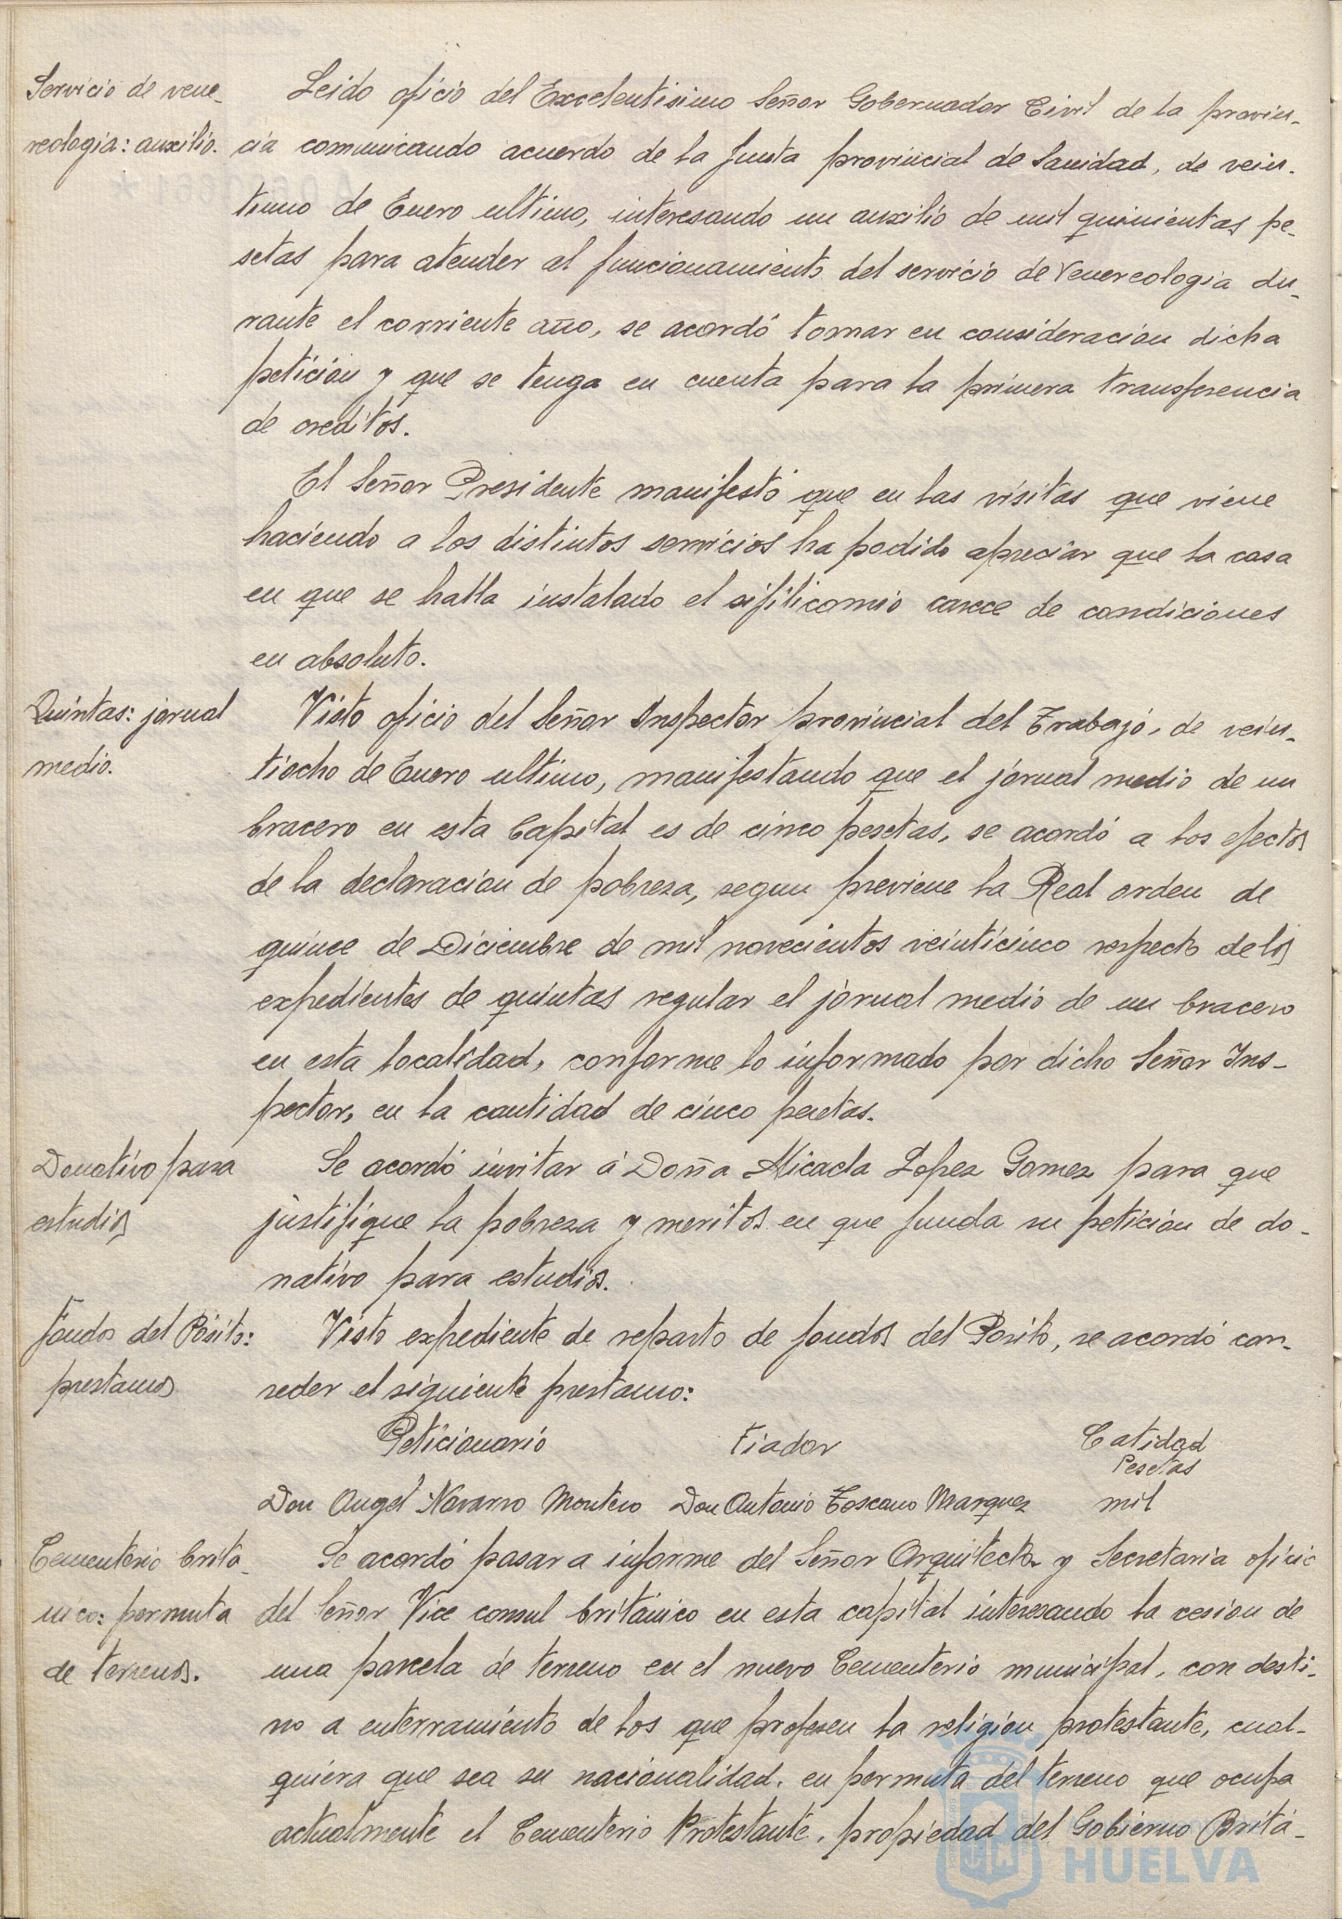 Servicio de vene-
reologia: auxilio.
Leido oficio del Excelentisimo Señor Gobernador Civil de la provin-
cia comunicando acuerdo de la Junta provincial de Sanidad, de vein-
tiuno de Enero ultimo, interesando un auxilio de mil quinientas pe-
setas para atender al funcionamiento del servicio de Venereologia du-
rante el corriente año, se acordó tomar en consideracion dicha
petición y que se tenga en cuenta para la primera transferencia
de creditos.
El Señor Presidente manifestó que en las visitas que viene
haciendo a los distintos servicios ha podido apreciar que la casa
en que se halla instalado el sifilicomio carece de condiciones
en absoluto.
Quintas: jornal
medio.
Visto oficio del Señor Inspector provincial del Trabajo, de vein-
tiocho de Enero ultimo, manifestando que el jornal medio de un
bracero en esta Capital es de cinco pesetas, se acordó a los efectos
de la declaracion de pobreza, segun previene la Real orden de
quince de Diciembre de mil novecientos veinticinco respecto de los
expedientes de quintas regular el jornal medio de un bracero
en esta localidad, conforme lo informado por dicho Señor Ins-
pector, en la cantidad de cinco pesetas.
Donativo para
estudios
Se acordó invitar á Doña Micaela Lopez Gomez para que
justifique la pobreza y meritos en que funda su petición de do-
nativo para estudios.
Fondos del Pósito:
prestamos
Visto expediente de reparto de fondos del Posito, se acordó con-
ceder el siguiente prestamo:
Peticionario Fiador Catidad
Pesetas
Don Angel Navarro Montero Don Antonio Toscano Marquez mil
Cementerio britá-
nico: permuta
de terrenos.
Se acordó pasar a informe del Señor Arquitecto y Secretaria oficio
del Señor Vice consul británico en esta capital interesando la cesion de
una parcela de terreno en el nuevo Cementerio municipal, con desti-
no a enterramiento de los que profesen la religión protestante, cual-
quiera que sea su nacionalidad, en permuta del terreno que ocupa
actualmente el Cementerio Protestante, propiedad del Gobierno Britá-
HUELVA